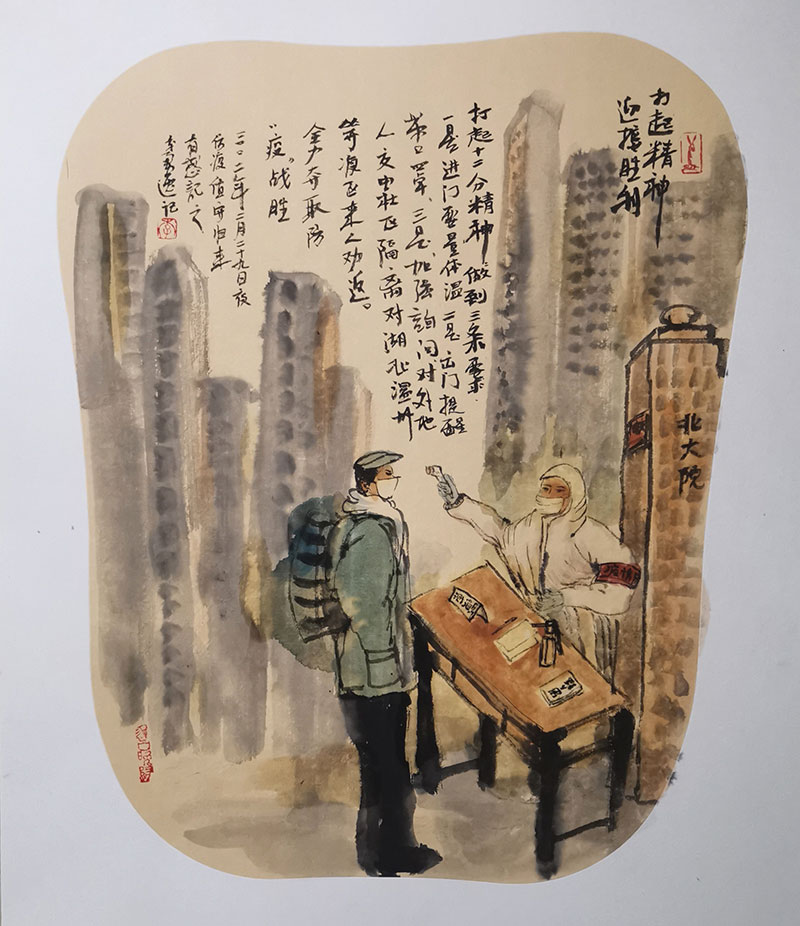 打起精神
迎接胜利
打起十二分精神做到三条要求.
一是进门要量体温二是出门提醒
带口罩、三是加强询问对外地
人交由社区隔离对湖北温州
等疫区来人劝返。
全力夺取防
“疫”战胜
二〇二〇年二月二十九日夜
值守归来
有感记之
逸记
北大院